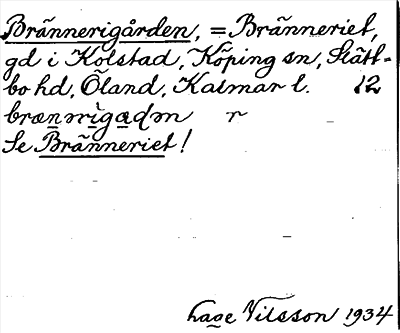 Brännerigården, = Bränneriet,
gd i Kolstad, Köping sn, Slätt-
bo hd, Öland, Kalmar l. 12
Se Bränneriet!
Hage Nilsson 1934